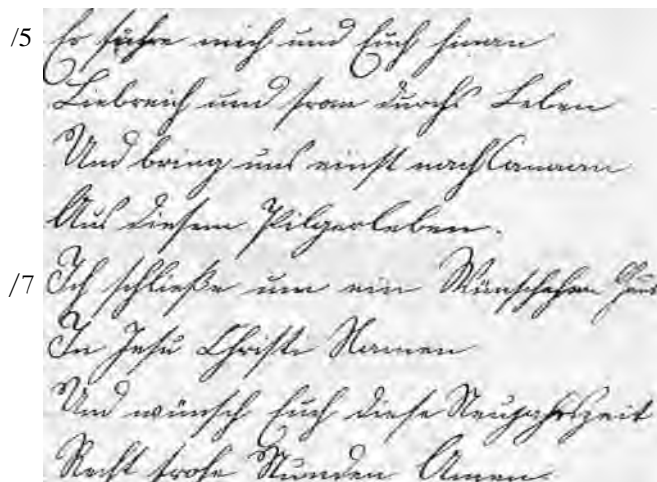 /5 Er führe mich und Euch hinan
Liebreich und from durchs Leben
Und bring uns einst nach Canaan
Aus diesem Pilgerleben.
/7 Ich schließe nun ein
In Jesu Christi Namen
Und wünsch Euch diese Neujahrszeit
Recht frohe Stunden Amen.